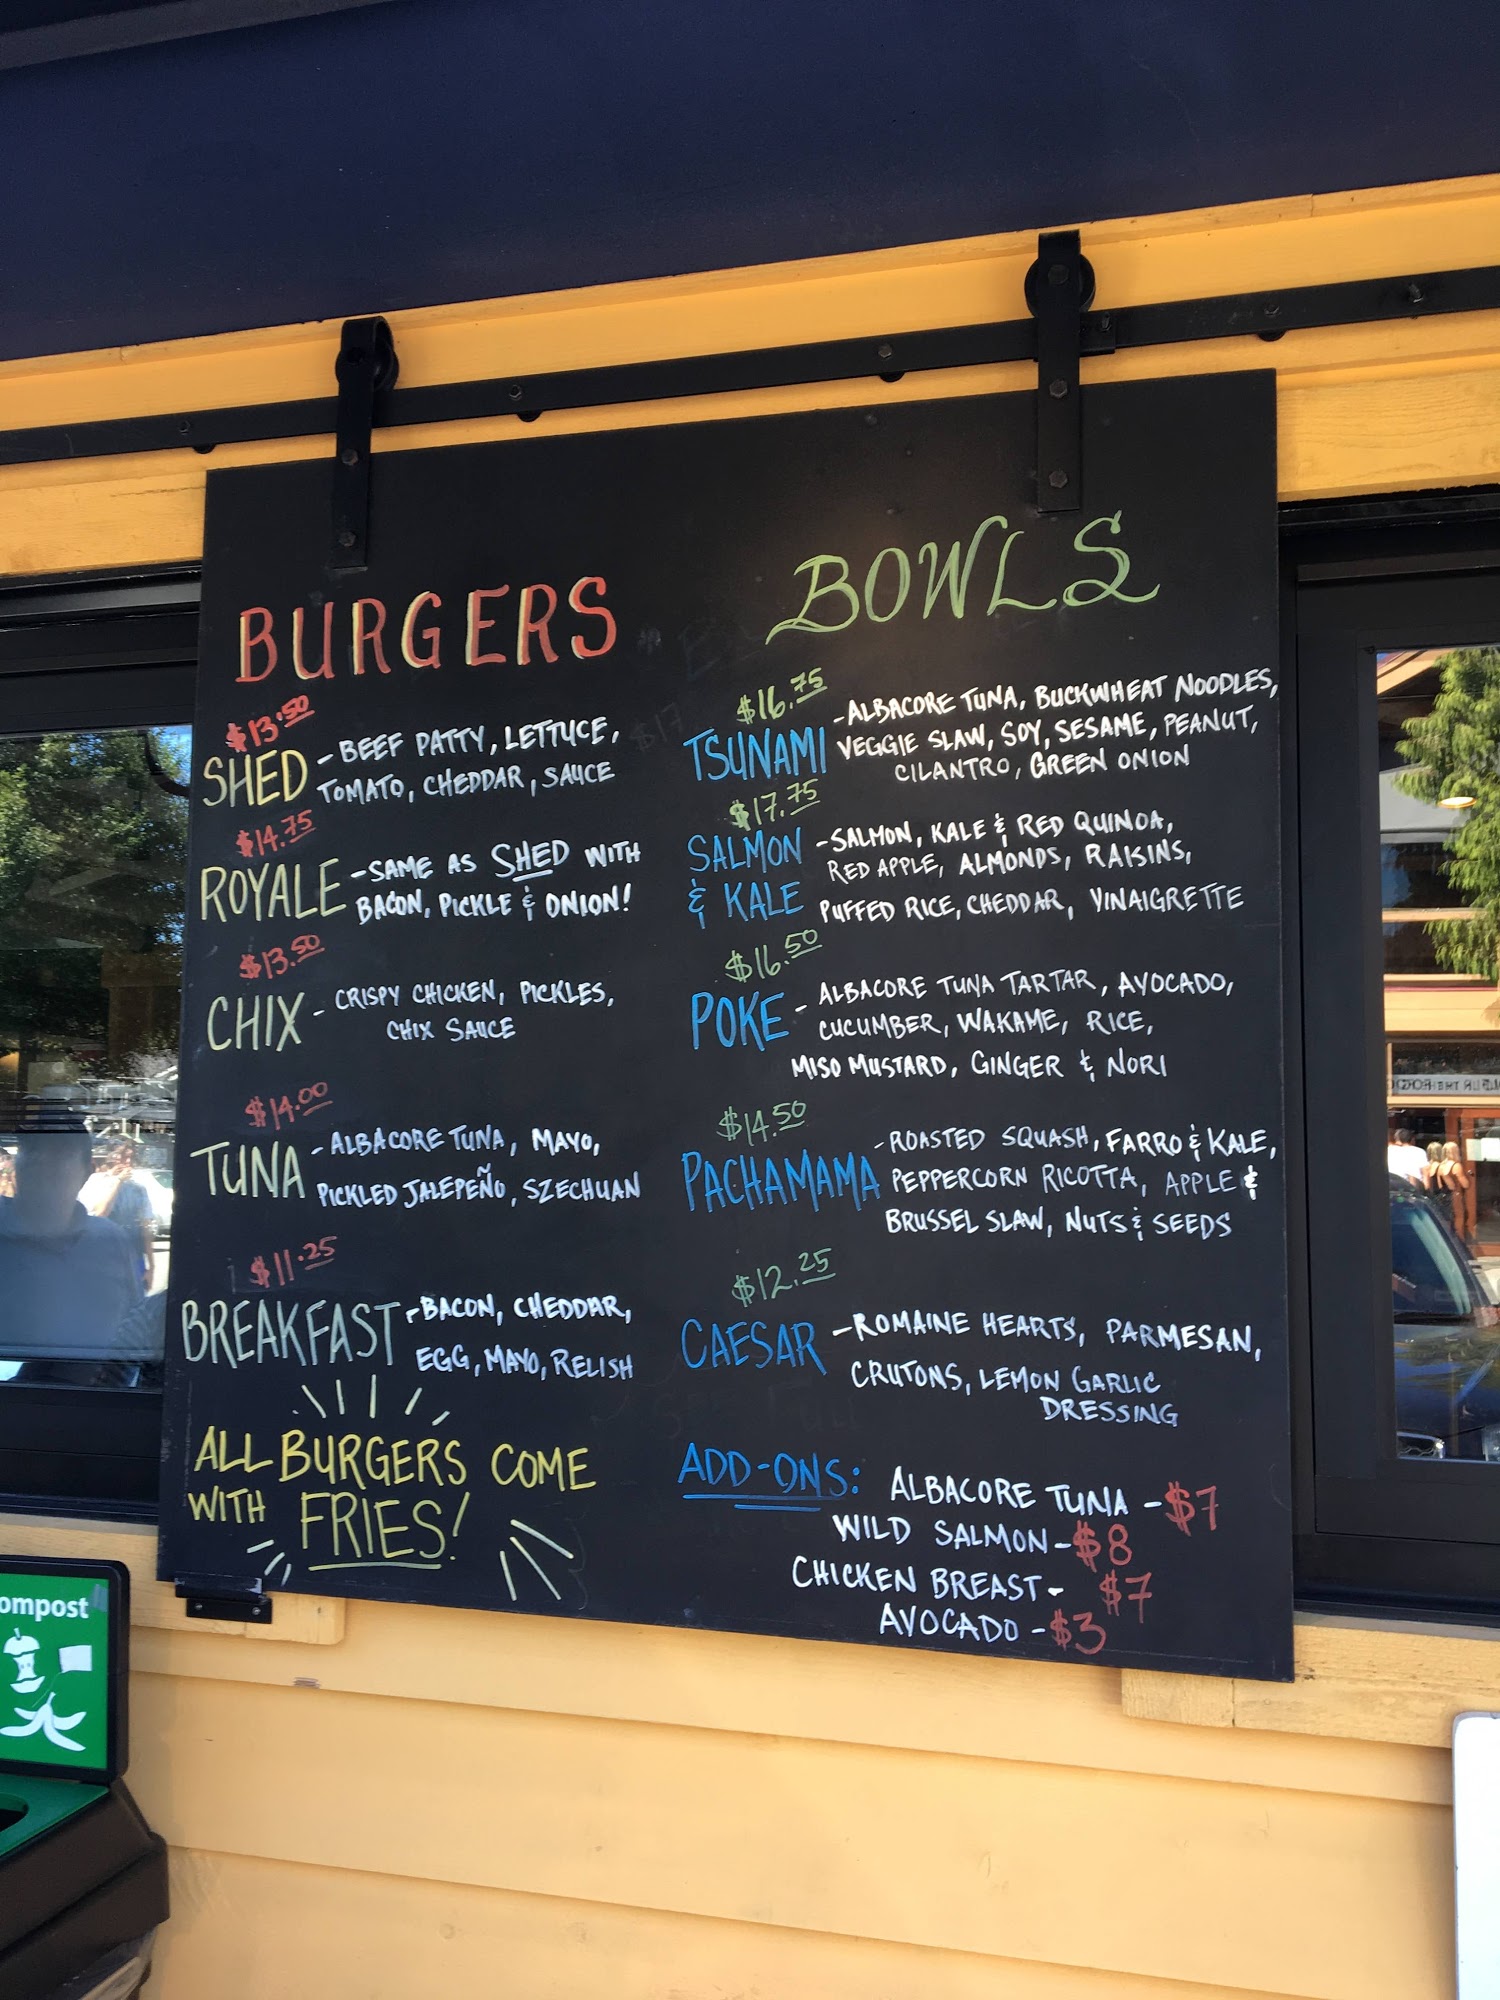 BURGERS
$13.50
SHED - BEEF PATTY, LETTUCE,
TOMATO, CHEDDAR, SAUCE
$14.75
ROYALE - SAME AS SHED WITH
BACON, PICKLE & ONION!
$13.50
CHIX - CRISPY CHICKEN, PICKLES,
CHIX SAUCE
$14.00
TUNA - ALBACORE TUNA, MAYO,
PICKLED JALEPEÑO, SZECHUAN
$11.25
BREAKFAST - BACON, CHEDDAR,
EGG, MAYO, RELISH
ALL BURGERS COME
WITH FRIES!
BOWLS
$16.75
TSUNAMI - ALBACORE TUNA, BUCKWHEAT NOODLES,
VEGGIE SLAW, SOY, SESAME, PEANUT,
CILANTRO, GREEN ONION
$17.75
SALMON - SALMON, KALE & RED QUINOA,
RED APPLE, ALMONDS, RAISINS,
& KALE PUFFED RICE, CHEDDAR, VINAIGRETTE
$16.50
POKE - ALBACORE TUNA TARTAR, AVOCADO,
CUCUMBER, WAKAME, RICE,
MISO MUSTARD, GINGER & NORI
$14.50
PACHAMAMA - ROASTED SQUASH, FARRO & KALE,
PEPPERCORN RICOTTA, APPLE &
BRUSSEL SLAW, NUTS & SEEDS
$12.25
CAESAR - ROMAINE HEARTS, PARMESAN,
CRUTONS, LEMON GARLIC
DRESSING
ADD-ONS: ALBACORE TUNA - $7
WILD SALMON - $8
CHICKEN BREAST - $7
AVOCADO - $3
ompost